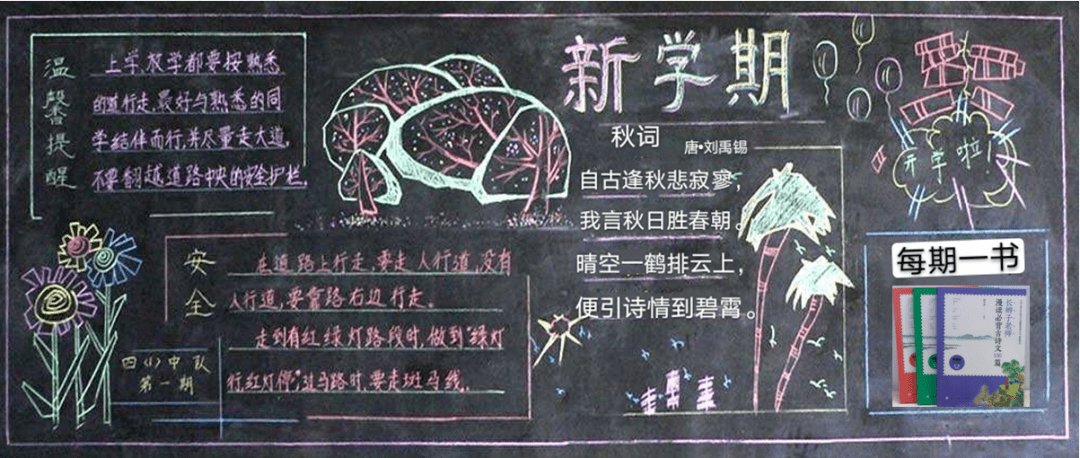 温馨提醒
上学、放学都要按熟悉
的道行走,最好与熟悉的同
学结伴而行,并尽量走大道,
不要翻越道路中央的安全护栏。
安全
在道路上行走,要走人行道,没有
人行道,要靠路右边行走。
走到有红绿灯路段时,做到“绿灯
行红灯停”过马路时,要走斑马线。
四(1)中队
第一期
新学期
秋词
唐•刘禹锡
自古逢秋悲寂寥,
我言秋日胜春朝。
晴空一鹤排云上,
便引诗情到碧霄。
开学啦!
每期一书
长梯子老师
漫读必背古诗文